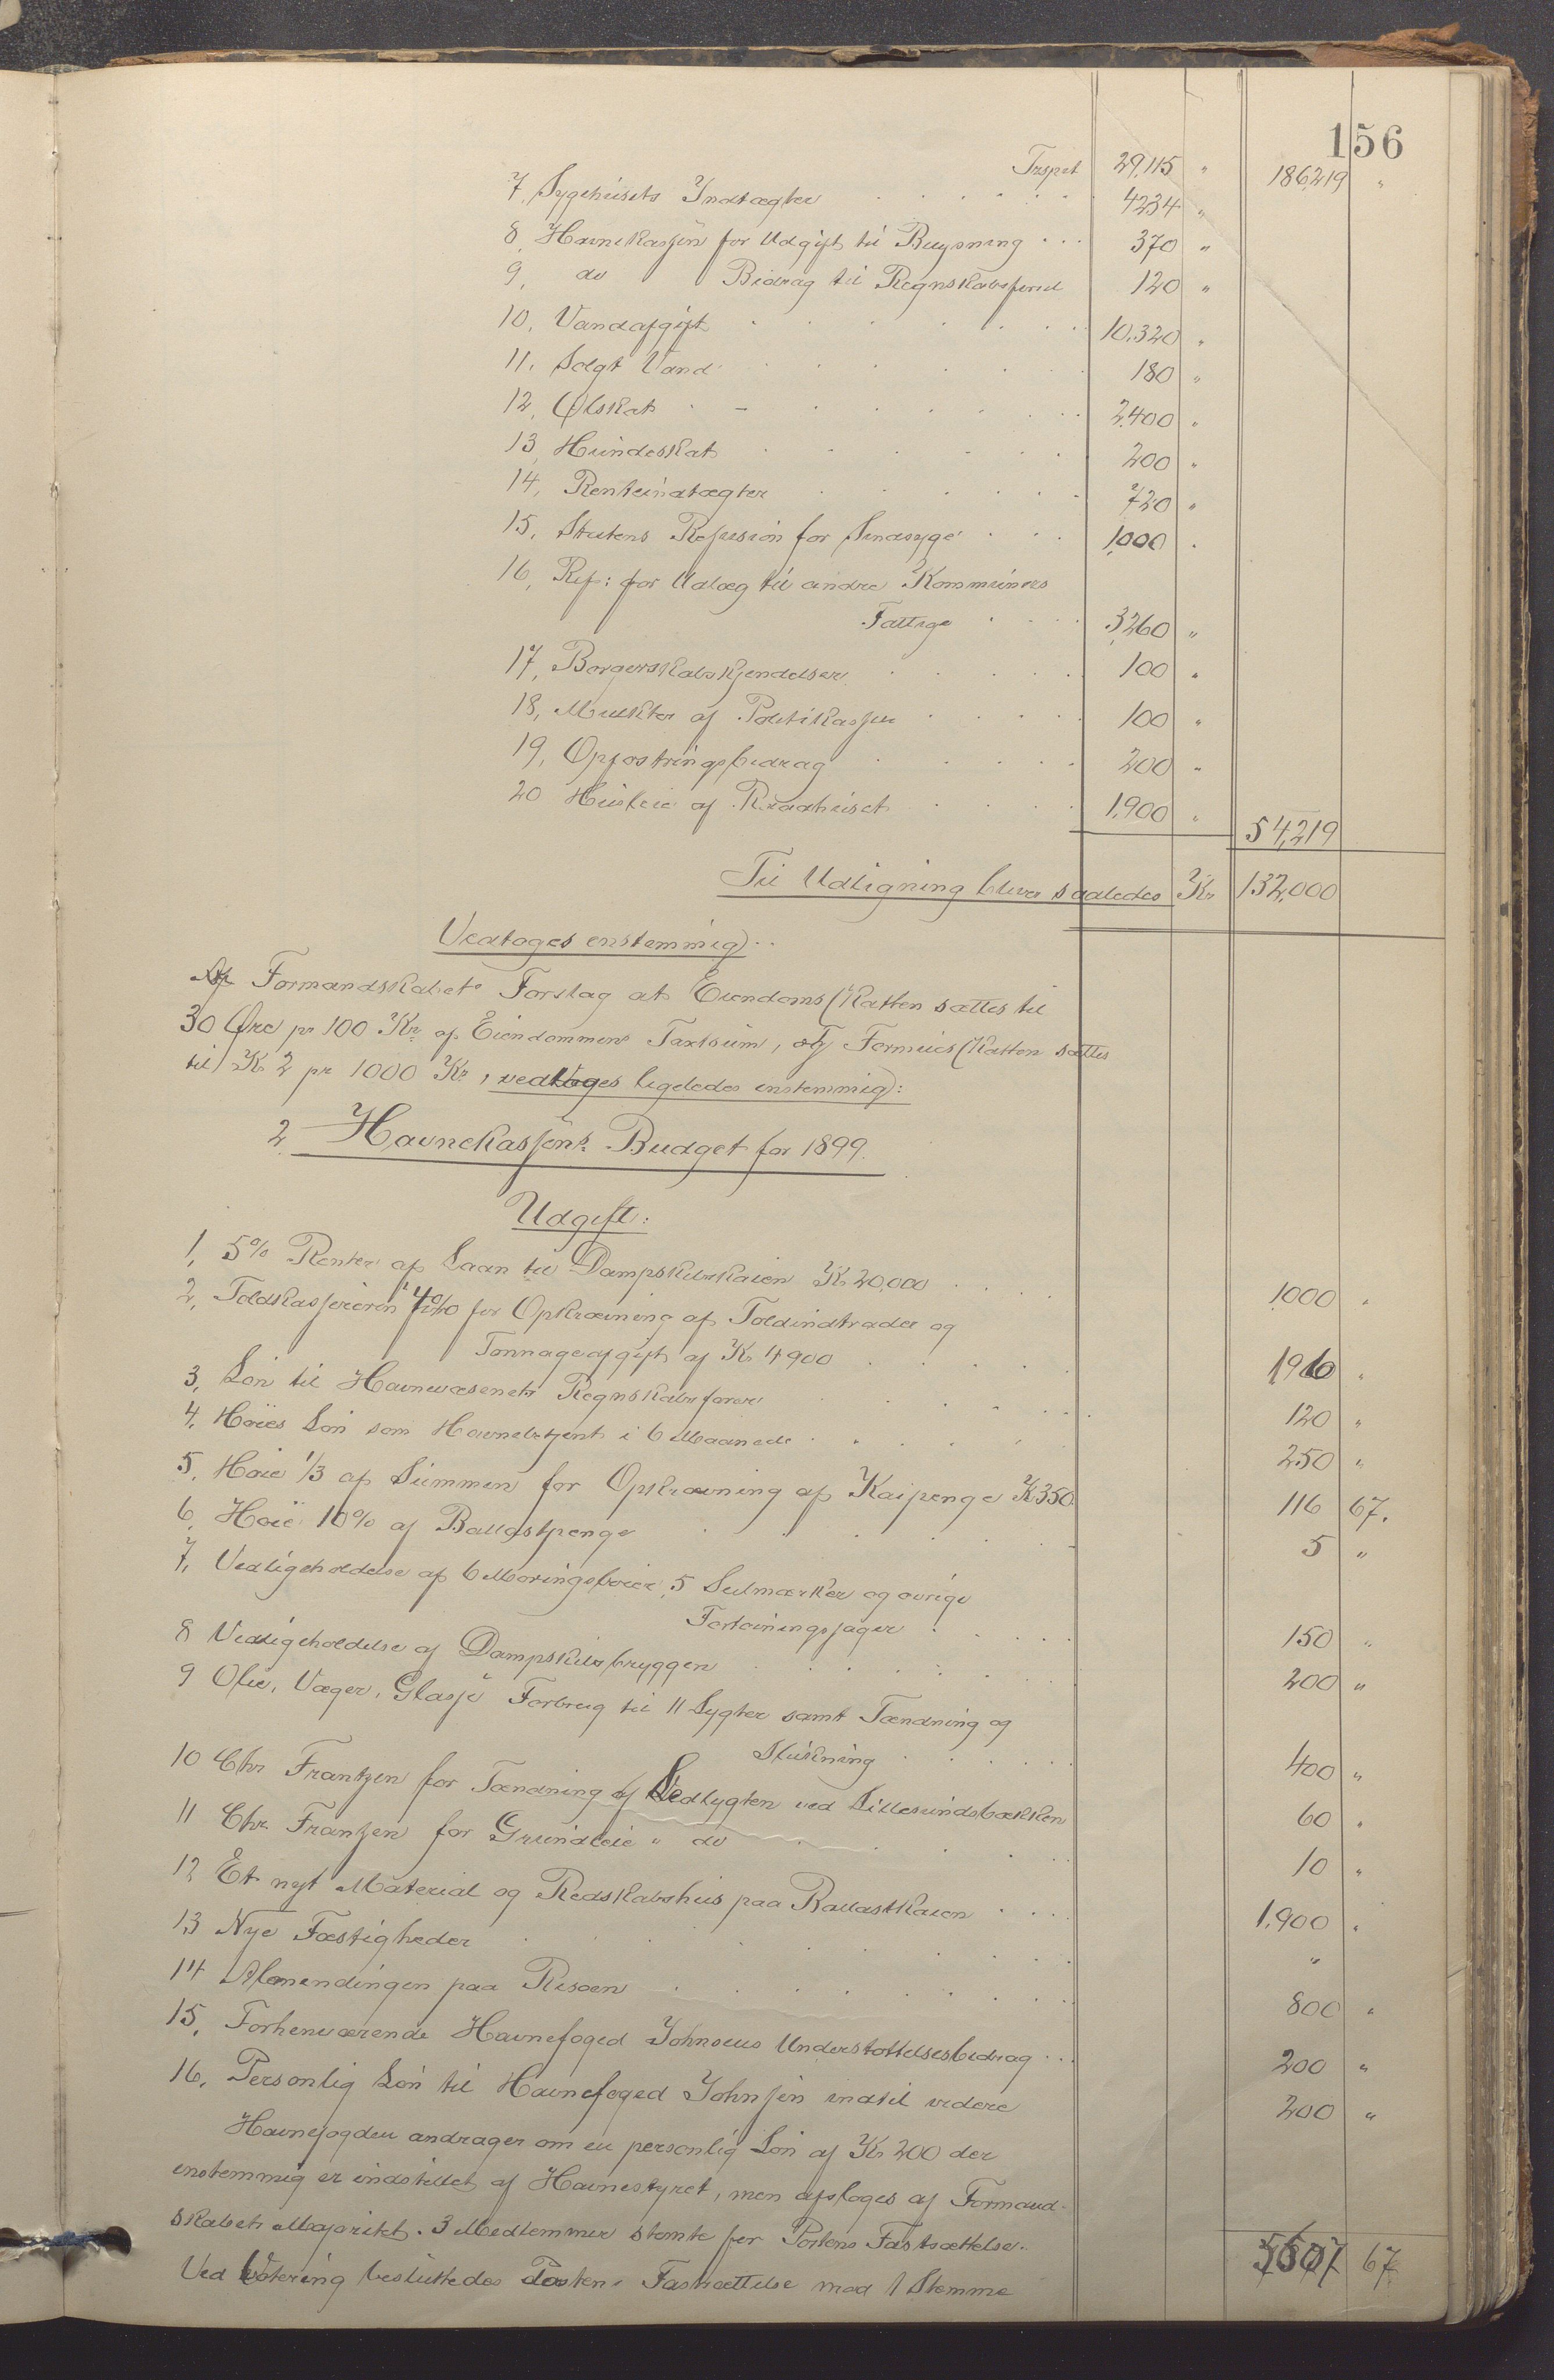 156
Trspt 29,115 " 186,219 "
7, Sygehusets Indtægter 4234 "
8, Havnekassen for Udgift til Brygning 370 "
9, do Bidrag til Regnskabsførsel 120 "
10, Vandafgift 10.320 "
11. Solgt Vand 180 "
12, Ølskat 2,400 "
13, Hundeskat 200 "
14, Renteindtægter 720 "
15, Statens Refusion for Sindsyge 1,000 "
16, Ref: for Udlæg til andre Kommuners
Fattige 3,260 "
17, Borgerskabskjendelser 100 "
18, Mulkter af Politikassen 100 "
19, Opfostringsbidrag 200 "
20 Husleie af Raadhuset 1,900 " 54,219
Til Udligning bliver saaledes Kr 132,000
Vedtoges enstemmig.
Formandskabets Forslag at Eiendomsskatten sættes til
30 Øre pr 100 Kr af Eiendommens Taxtsum, og Formuesskatten sættes
til Kr 2 pr 1000 Kr, vedtoges ligeledes enstemmig:
2 Havnekassens Budget for 1899.
Udgift:
1, 5% Renter af Laan til Dampskibskaien Kr 20,000 1,000 "
2, Toldkassereren 4% for Opkrævning af Toldindtrader og
Tonnageafgift af Kr 4900 196 "
3, Løn til Havnevæsenets Regnskabsfører 120 "
4, Høies Løn som Havnebetjent i 6 Maaneder 250 "
5, Høie 1/3 af Summen for Opkrævning af Kaipenge Kr 350 116 67.
6, Høie 10% af Ballastpenge 5 "
7, Vedligeholdelse af 6 Moringsbøier, 5 Seilmærker og øvrige
Fortøiningssager 150 "
8 Vedligeholdelse af Dampskibsbryggen 200 "
9 Olie, Væger, Glas, Forbrug til 11 Lygter samt Tænding og
Slukning 400 "
10 Chr Frantzen for Tænding af Ledlygten ved Lillesundsbakken 60 "
11 Chr. Frantzen for Grundleie " do 10 "
12 Et nyt Material og Redskabshus paa Ballastkaien 1,900 "
13 Nye Fæstigheder "
14 Almendingen paa Risøen 800 "
15, Forhenværende Havnefoged Johnsens Understøttelsesbidrag 200 "
16, Personlig Løn til Havnefoged Johnsen indtil videre 200 "
Havnefogden andrager om en personlig Løn af Kr 200 der
enstemmig er indstillet af Havnestyret, men afsloges af Formand-
skabets Majoritet. 3 Medlemmer stemte for Postens Fastsættelse.
Ved Votering besluttedes Postens Fastsættelse mod 1 Stemme 5607 67